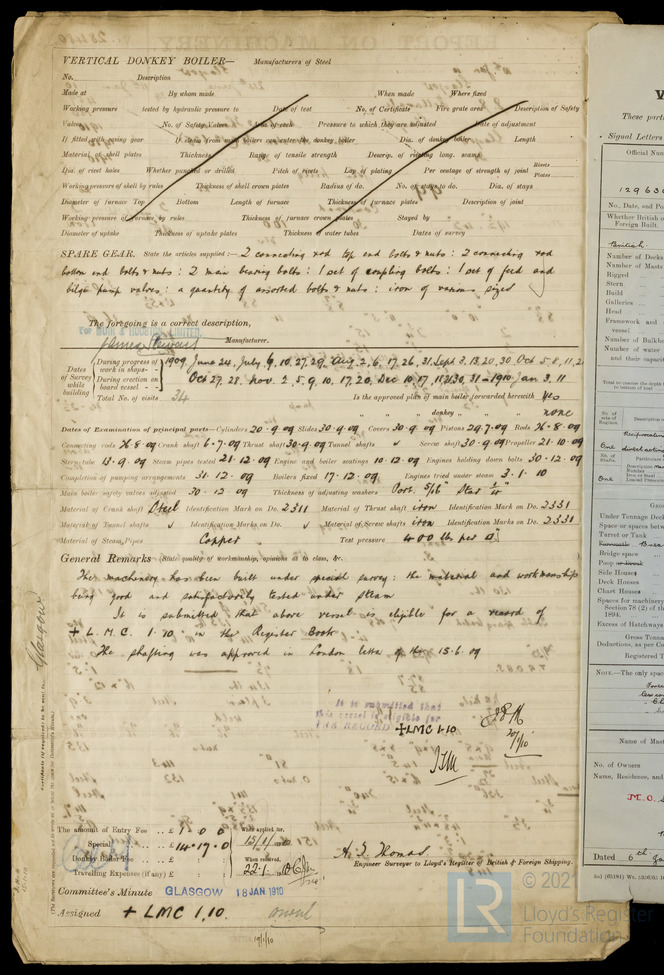 VERTICAL DONKEY BOILER— Manufacturers of Steel
No. Description
Made at By whom made When made Where fixed
Working pressure tested by hydraulic pressure to Date of test No. of Certificate Fire grate area Description of Safety
Valves No. of Safety Valves Area of each Pressure to which they are adjusted Date of adjustment
If fitted with easing gear If steam from main boilers can enter the donkey boiler Dia. of donkey boiler Length
Material of shell plates Thickness Range of tensile strength Descrip. of riveting long. seams
Dia. of rivet holes Whether punched or drilled Pitch of rivets Lap of plating Per centage of strength of joint Rivets Plates
Working pressure of shell by rules Thickness of shell crown plates Radius of do. No. of stays to do. Dia. of stays
Diameter of furnace Top Bottom Length of furnace Thickness of furnace plates Description of joint
Working pressure of furnace by rules Thickness of furnace crown plates Stayed by
Diameter of uptake Thickness of uptake plates Thickness of water tubes Dates of survey
SPARE GEAR. State the articles supplied:— 2 connecting rod top end bolts & nuts: 2 connecting rod
bottom end bolts & nuts: 2 main bearing bolts: 1 set of coupling bolts: 1 set of feed and
bilge pump valves: a quantity of assorted bolts & nuts: iron of various sizes
The foregoing is a correct description,
Manufacturer.
Dates of Survey while building
During progress of work in shops-- 1909 June 24, July 9, 10, 27, 29, Aug 2, 6, 17, 26, 31, Sept 3, 13, 20, 30, Oct 5, 8, 11, 2
During erection on board vessel--- Oct 27, 28, Nov. 2, 5, 9, 10, 17, 20, Dec 10, 17, 30, 31—1910 Jan 3, 11
Total No. of visits 34 Is the approved plan of main boiler forwarded herewith Yes
" " " donkey " " " none
Dates of Examination of principal parts—Cylinders 20-9-09 Slides 30-9-09 Covers 30-9-09 Pistons 29-7-09 Rods 26-8-09
Connecting rods 26-8-09 Crank shaft 6-7-09 Thrust shaft 30-9-09 Tunnel shafts ✓ Screw shaft 30-9-09 Propeller 21-10-09
Stern tube 13-9-09 Steam pipes tested 21-12-09 Engine and boiler seatings 10-12-09 Engines holding down bolts 30-12-09
Completion of pumping arrangements 31-12-09 Boilers fixed 17-12-09 Engines tried under steam 3-1-10
Main boiler safety valves adjusted 30-12-09 Thickness of adjusting washers Port 5/16" Star
Material of Crank shaft Steel Identification Mark on Do. 2311 Material of Thrust shaft iron Identification Mark on Do. 2331
Material of Tunnel shafts ✓ Identification Marks on Do. ✓ Material of Screw shafts iron Identification Marks on Do. 2331
Material of Steam Pipes Copper Test pressure 400 lbs per □"
General Remarks (State quality of workmanship, opinions as to class, &c.
The machinery has been built under special survey: the material and workmanship
being good and satisfactorily tested under steam
It is submitted that above vessel is eligible for a record of
+ L.M.C. 1.10 in the Register Book
The shafting was approved in London letter of the 15.6.09
Glasgow
It is submitted that
this vessel is eligible for
THE RECORD +LMC 1.10
20/1/10
The amount of Entry Fee .. £ 1 . 0 . 0 When applied for,
Special .. £ 14 . 17 . 0
Donkey Boiler Fee .. £ When received,
Travelling Expenses (if any) £ 22.1.10
A. J. Thomas
Engineer Surveyor to Lloyd's Register of British & Foreign Shipping.
Committee's Minute GLASGOW 18 JAN 1910
Assigned + LMC 1.10.
19/1/10
These parti
Signal Letters
Official Num
No., Date, and Po
Whether British o
Foreign Built.
British
Number of Decks
Number of Masts
Rigged
Stern
Build
Galleries
Head
Framework and
vessel
Number of Bulkhe
Number of water
and their capacit
No. of Engines
One
No. of Shafts
Particulars
One
Under Tonnage Deck
Space or spaces betw
Turret or Trunk
Bridge space
Poop
Side Houses
Deck Houses
Chart Houses
Spaces for machinery
Section 78 (2) of the
1894.
Excess of Hatchways
Gross Tonna
Deductions, as per Co
Registered T
NOTE.—The only spac
Name of Mast
No. of Owners
Name, Residence, and
M.O.
Dated 6th
© 2021
LR
Lloyd's Register
Foundation